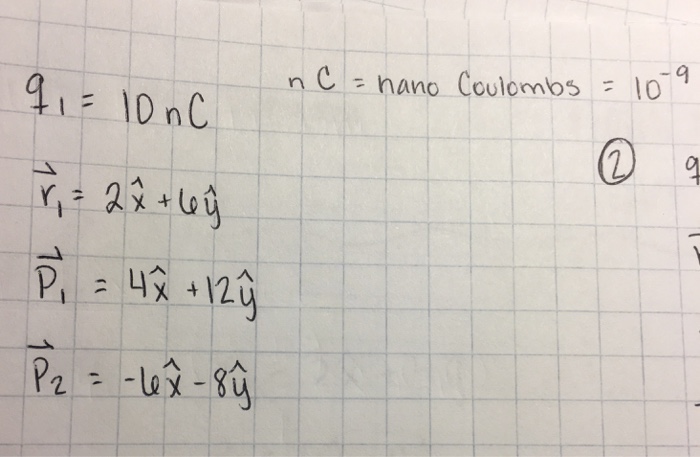 q₁ = 10 nC
nC = nano Coulombs = 10⁻⁹
② q
r⃗₁ = 2x̂ + 6ŷ
P⃗₁ = 4x̂ + 12ŷ
P⃗₂ = -6x̂ - 8ŷ